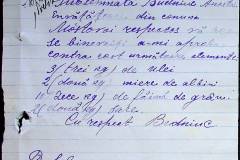 Subsemnata Budniuc Anastasia
Învățătoare din comuna
Mostovoi respectos vă rog
se binevoiți a-mi aproba
contra cost următoarele elemente
3/trei kg/ de ulei
2/două kg/ miere de albini
10/zece kg/ de făină de grâu
2/două kg/
Cu respect Budniuc